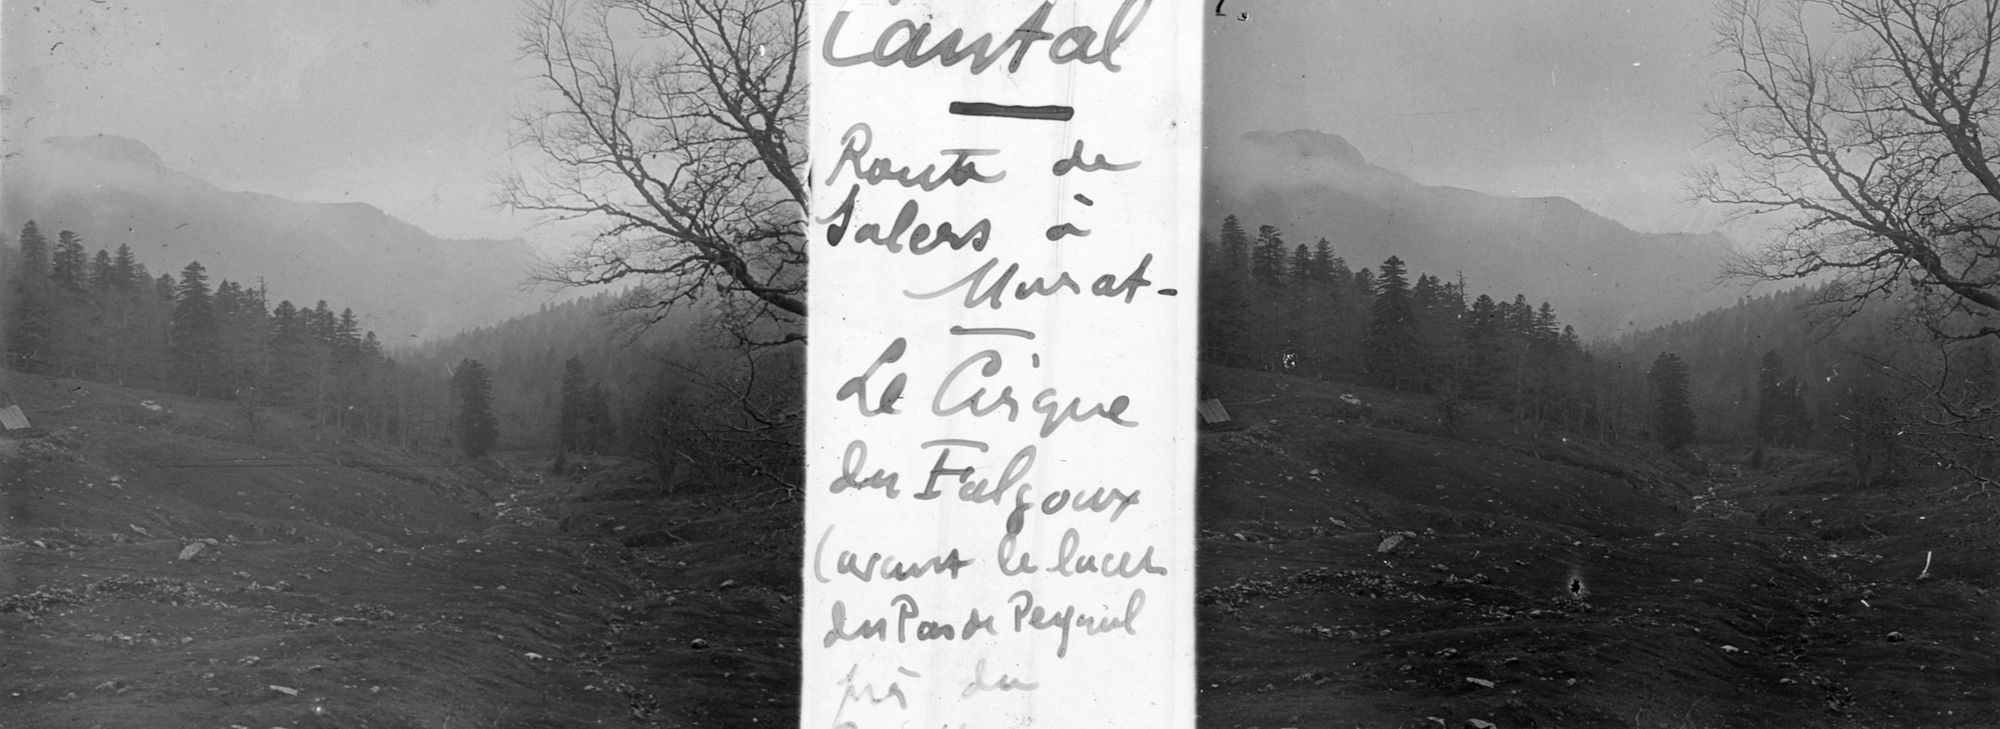 Cantal
Route de
Salers à
Murat-
Le Cirque
du Falgoux
(avant le lacet
du Pas de Peyrol
près du